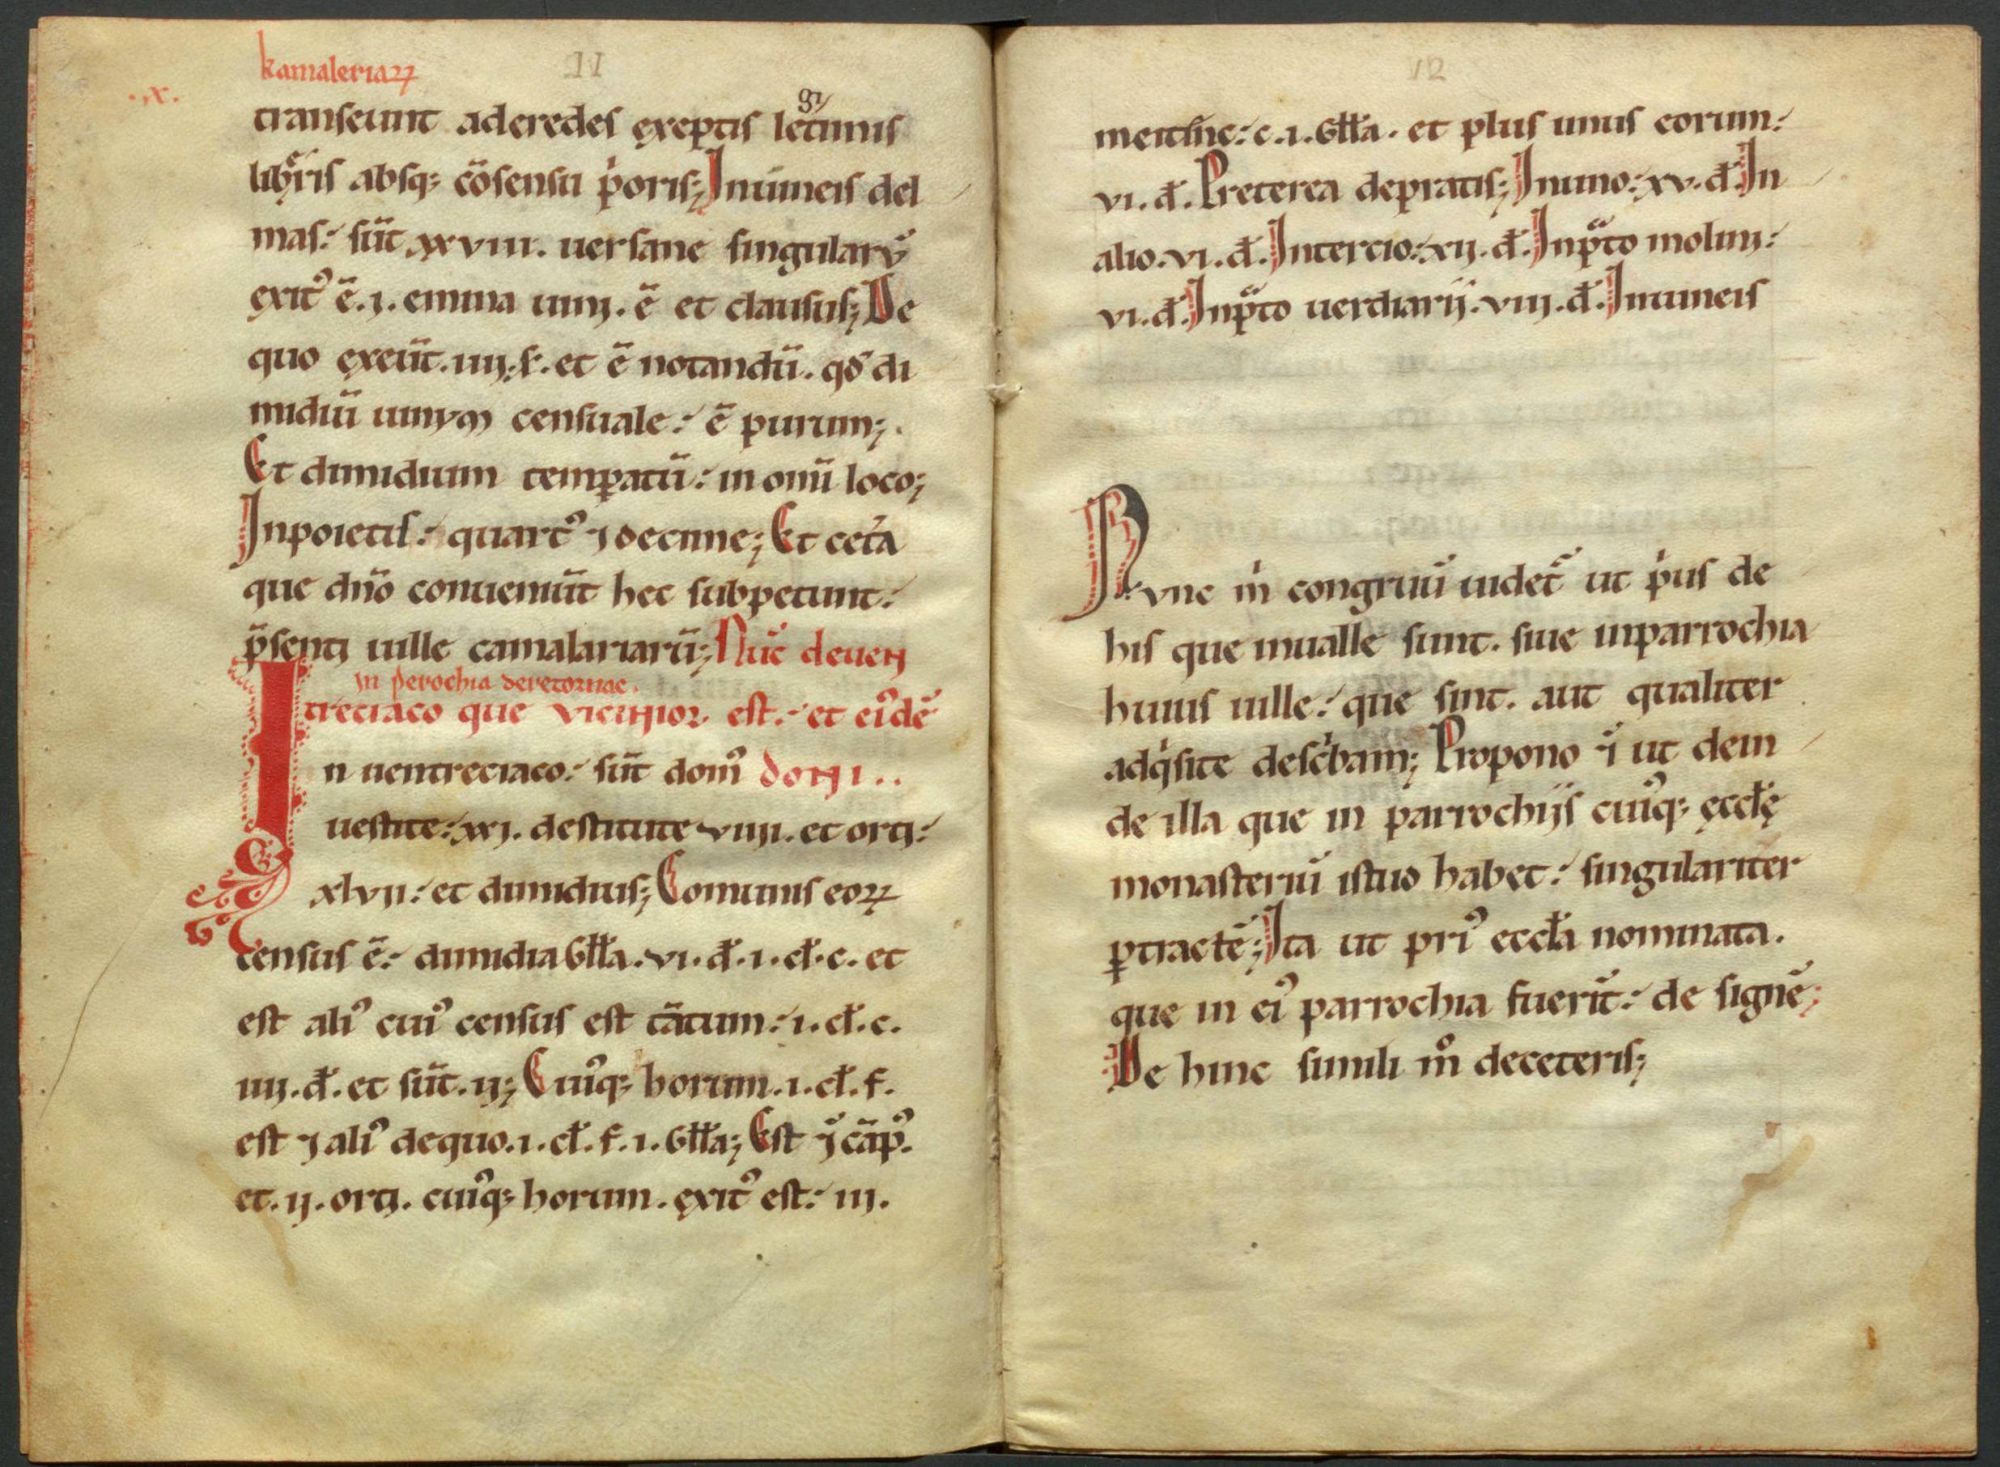 kamaleriaꝝ
11
.x.
transeunt aderedes exeptis letimis
gi
libris absq; cōsensu p̍oris; Inuineis del
mas: sūt xxviii. uersane singularꝰ
exitꝰ ē .i. emina uini. ē et clausus; De
quo exeūt .iiii. s. et ē notandū. qd̄ di
midiū uinum censuale: ē purum;
Et dimidium temꝑatū: in oīm loco;
Inpoietis: quartꝰ ⁊ decime; Et cet̍a
que dn̄o conueniūt hec subpetunt:
p̄senti uille camalariarū; Nūc deuen
In perochia deretornac.
treciaco que vicinior est: et eiꝰdē
In uentreciaco: sūt domꝰ doni..
uestite: xxi. destitute viiii. et orti:
xlvii: et dimidius; Comunis eoꝝ
census ē: dimidia głła. vi. đ. i. cł. c. et
est aliꝰ cuiꝰ census est tātum: i. cł. c.
iiii. đ. et sūt. ii; Cuiꝰq; horum. i. cł. f.
est ⁊ aliꝰ dequo. i. cł. f. i. głła; Est ⁊ cāpꝰ.
et. ii. orti. cuiꝰq; horum. exitꝰ est: iii.
12
c. i. głła. et plus unus eorum:
vi. đ. Preterea depratis; Inuno: xv. đ. In
alio. vi. đ. Intercio: xii. đ. Inp̄to molini:
vi. đ. Inp̄to uerdiarii. viii. đ. Inuineis
Nvnc m̍ congruū uidet̄ ut p̍us de
his que inualle sunt. siue inparrochia
huius uille: que sint. aut qualiter
adq̍site desc̍bam; Propono ut dein
de illa que in parrochiis cuiꝰq; ęccłę
monasteriū istud habet: singulariter
ꝑtractē; Ita ut priꝰ eccła nominata.
que in eiꝰ parrochia fuerīt: de signē;
De hinc simili m̊ deceteris;